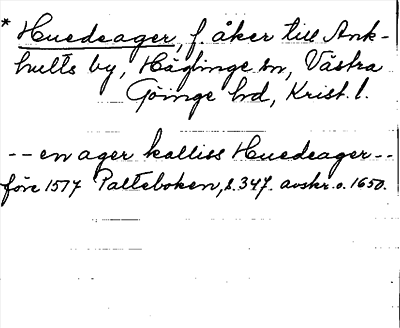 * Huedeager, f. åker till Ank-
hults by, Häglinge sn, Västra
Göinge hd, Krist. l.
-- en ager kalliss Huedeager --
före 1517 Palteboken, s. 347. avskr. o. 1650.